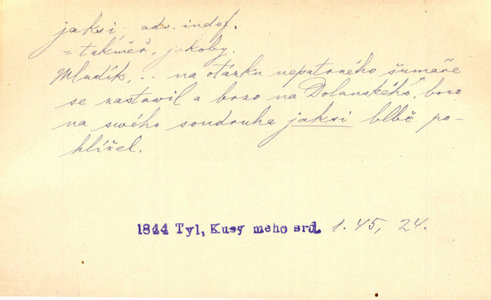 jaksi, adv. indef.
= takměř, jakoby.
Mladík, .. na otázku nepatrného šumaře
se zastavil a brzo na Dolanského, brzo
na svého soudruha jaksi blbě po-
hlížel.
1844 Tyl, Kusy meho srd. 1. 45, 24.